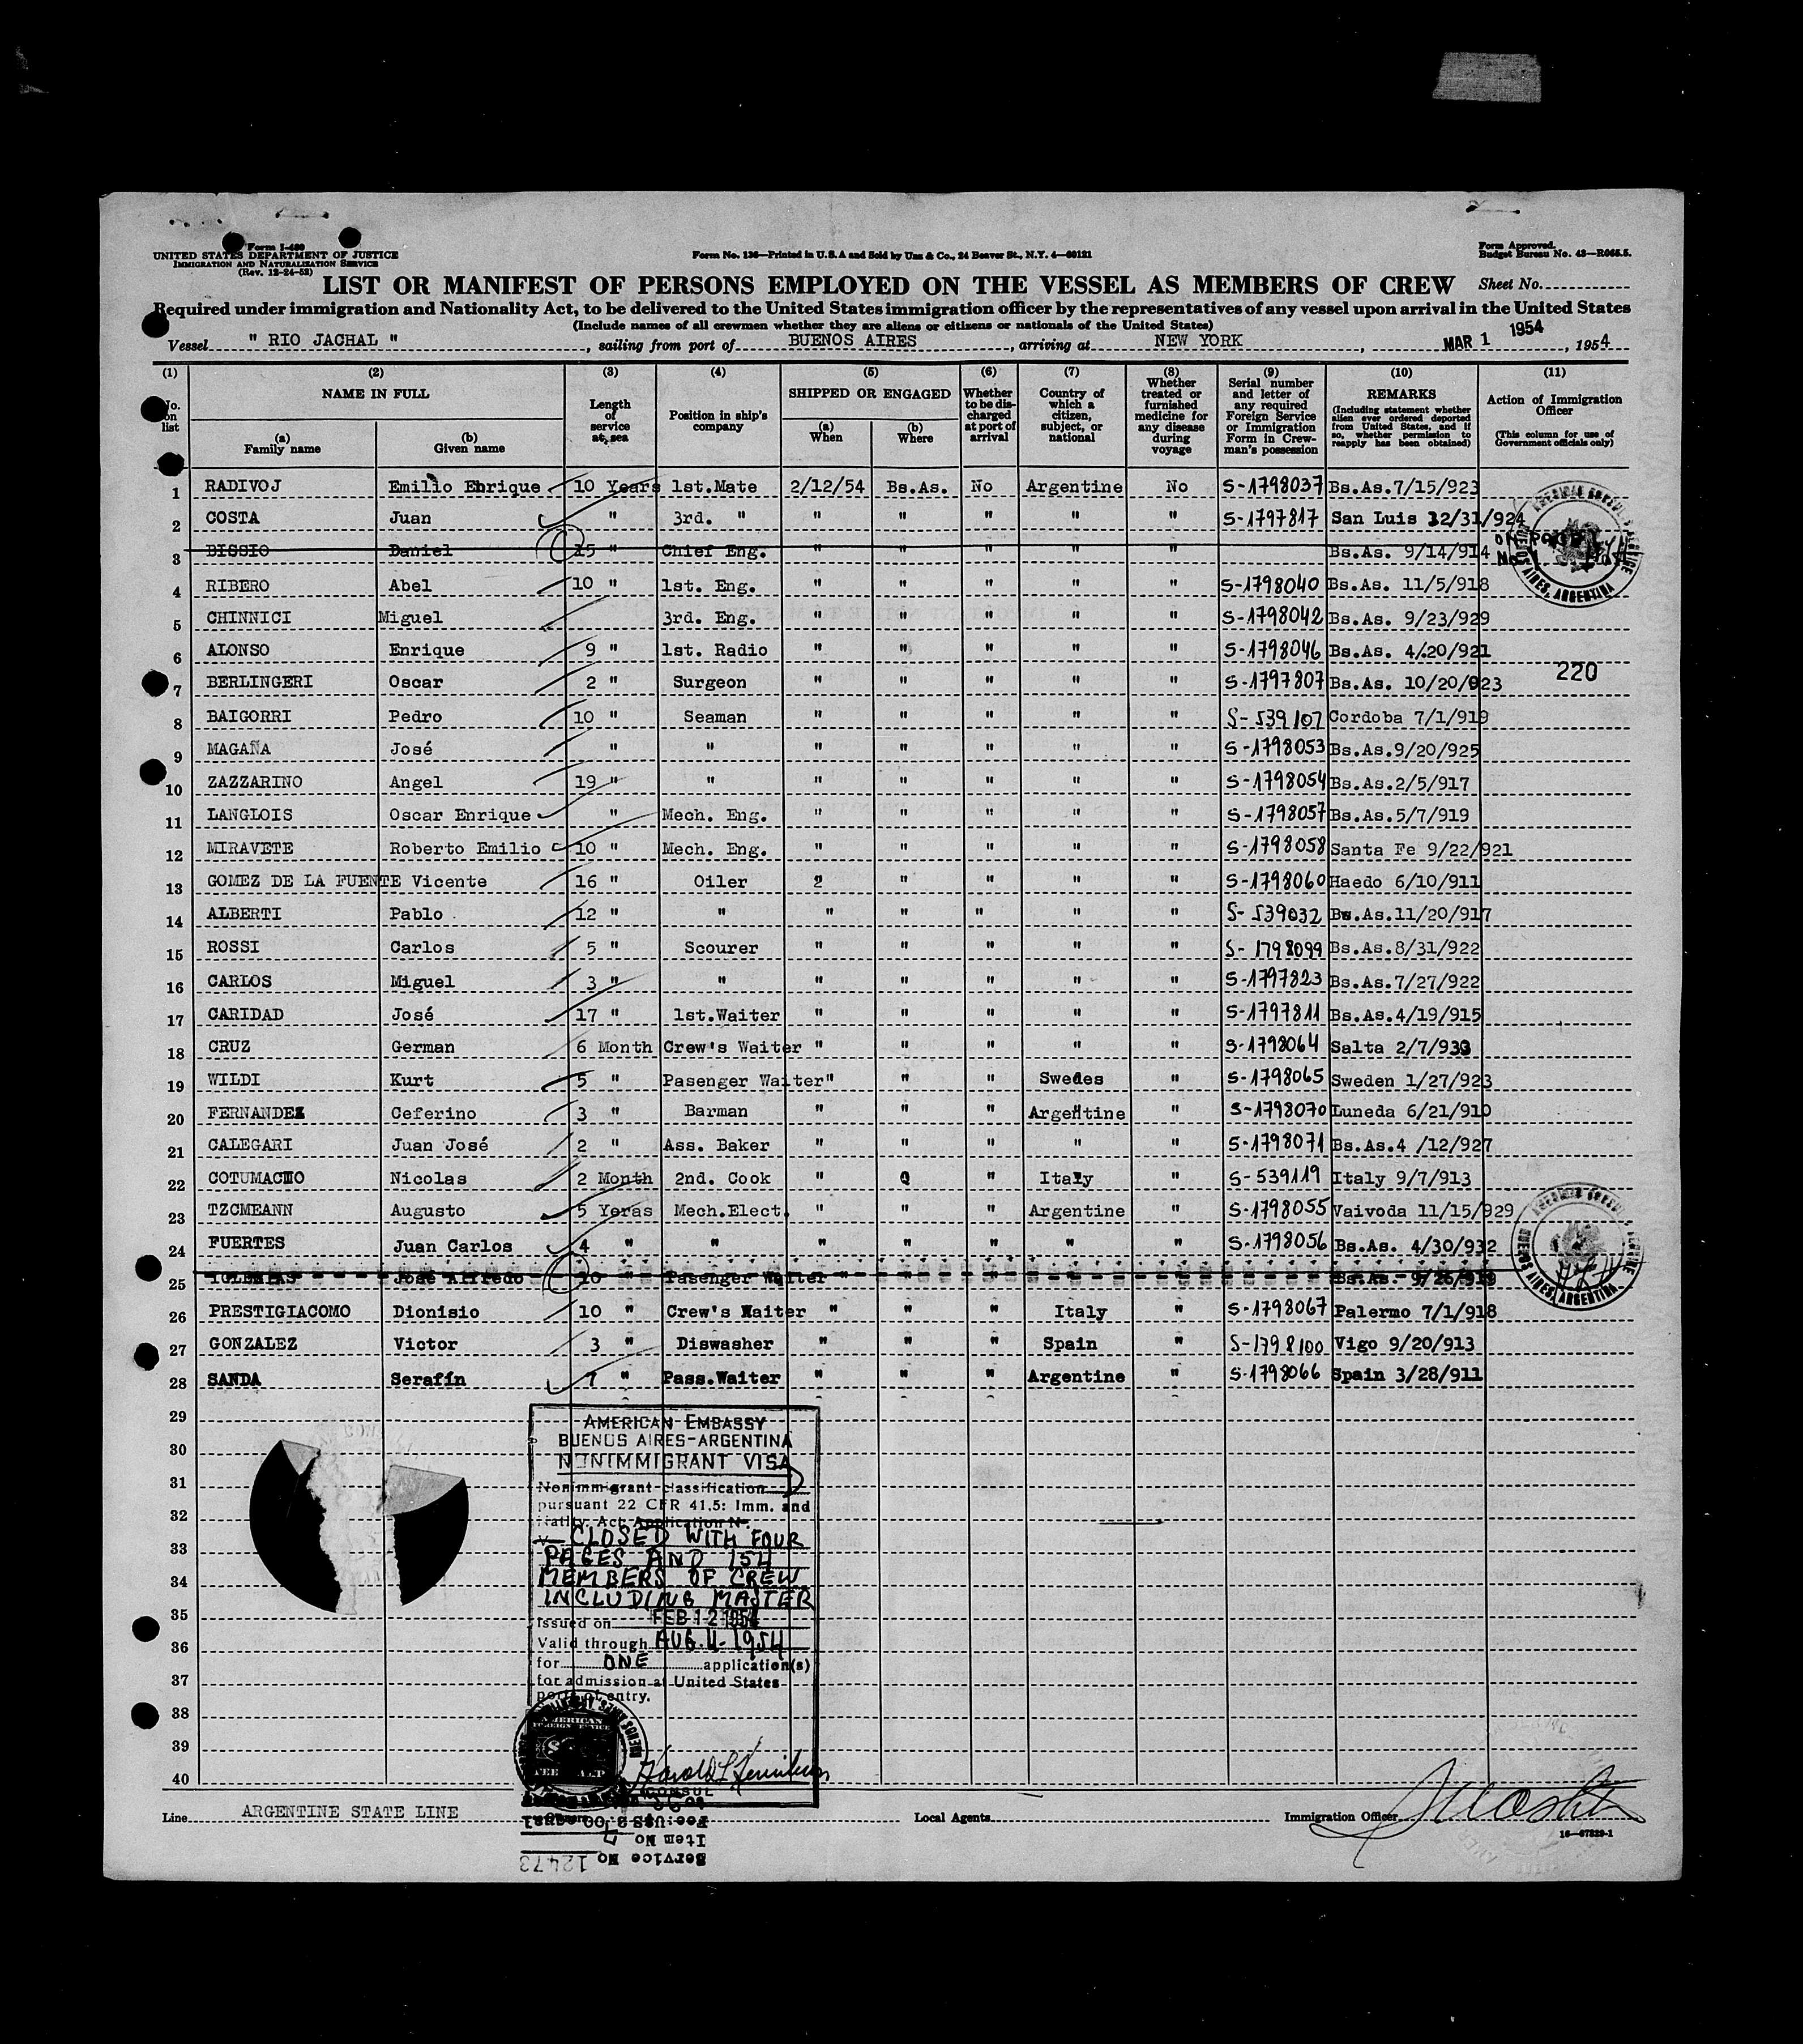 Form I-480
UNITED STATES DEPARTMENT OF JUSTICE
IMMIGRATION AND NATURALIZATION SERVICE
(Rev. 12-24-52)
Form No. 136—Printed in U.S.A and Sold by Unz & Co., 24 Beaver St., N.Y. 4—60121
Form Approved.
Budget Bureau No. 43—R065.5.
LIST OR MANIFEST OF PERSONS EMPLOYED ON THE VESSEL AS MEMBERS OF CREW Sheet No.
Required under immigration and Nationality Act, to be delivered to the United States immigration officer by the representatives of any vessel upon arrival in the United States
(Include names of all crewmen whether they are aliens or citizens or nationals of the United States)
Vessel " RIO JACHAL ", sailing from port of BUENOS AIRES, arriving at NEW YORK, MAR 1 1954, 1954
(1) (2) (3) (4) (5) (6) (7) (8) (9) (10) (11)
No. on list
NAME IN FULL
(a) Family name
(b) Given name
Length of service at sea
Position in ship's company
SHIPPED OR ENGAGED
(a) When
(b) Where
Whether to be discharged at port of arrival
Country of which a citizen, subject, or national
Whether treated or furnished medicine for any disease during voyage
Serial number and letter of any required Foreign Service or Immigration Form in Crewman's possession
REMARKS
(Including statement whether alien ever ordered deported from United States, and if so, whether permission to reapply has been obtained)
Action of Immigration Officer
(This column for use of Government officials only)
1 RADIVOJ Emilio Enrique 10 Years 1st.Mate 2/12/54 Bs.As. No Argentine No S-1798037 Bs.As.7/15/923
2 COSTA Juan " 3rd. " " " " " " S-1797817 San Luis 12/31/924
3 BISSIO Daniel 15 " Chief Eng. " " " " " Bs.As. 9/14/914
4 RIBERO Abel 10 " 1st. Eng. " " " " " S-1798040 Bs.As. 11/5/918
5 CHINNICI Miguel 3rd. Eng. " " " " " S-1798042 Bs.As. 9/23/929
6 ALONSO Enrique 9 " 1st. Radio " " " " " S-1798046 Bs.As. 4/20/921
7 BERLINGERI Oscar 2 " Surgeon " " " " " S-1797807 Bs.As. 10/20/923
220
8 BAIGORRI Pedro 10 " Seaman " " " " " S-539107 Cordoba 7/1/919
9 MAGAÑA José " " " " " " " S-1798053 Bs.As.9/20/925
10 ZAZZARINO Angel 19 " " " " " " " S-1798054 Bs.As.2/5/917
11 LANGLOIS Oscar Enrique " Mech. Eng. " " " " " S-1798057 Bs.As.5/7/919
12 MIRAVETE Roberto Emilio 10 " Mech. Eng. " " " " " S-1798058 Santa Fe 9/22/921
13 GOMEZ DE LA FUENTE Vicente 16 " Oiler 2 " " " " S-1798060 Haedo 6/10/911
14 ALBERTI Pablo 12 " " " " " " " S-539032 Bs.As.11/20/917
15 ROSSI Carlos 5 " Scourer " " " " " S-1798099 Bs.As.8/31/922
16 CARLOS Miguel 3 " " " " " " " S-1797823 Bs.As.7/27/922
17 CARIDAD José 17 " 1st.Waiter " " " " " S-1797811 Bs.As.4/19/915
18 CRUZ German 6 Month Crew's Waiter " " " " " S-1798064 Salta 2/7/933
19 WILDI Kurt 5 " Pasenger Waiter" " " Swedes " S-1798065 Sweden 1/27/923
20 FERNANDEZ Ceferino 3 " Barman " " " Argentine " S-1798070 Luneda 6/21/910
21 CALEGARI Juan José 2 " Ass. Baker " " " " " S-1798071 Bs.As.4 /12/927
22 COTUMACIO Nicolas 2 Month 2nd. Cook " Q " Italy " S-539119 Italy 9/7/913
23 TZCMEANN Augusto 5 Yeras Mech.Elect. " " " Argentine " S-1798055 Vaivoda 11/15/929
24 FUERTES Juan Carlos 4 " " " " " " " S-1798056 Bs.As. 4/30/932
25 IGLESIAS José Alfredo 10 " Pasenger Waiter " " " " " Bs.As.
26 PRESTIGIACOMO Dionisio 10 " Crew's Waiter " " " Italy " S-1798067 Palermo 7/1/918
27 GONZALEZ Victor 3 " Diswasher " " " Spain " S-1798100 Vigo 9/20/913
28 SANDA Serafín 7 " Pass.Waiter " " " Argentine " S-1798066 Spain 3/28/911
29
30
31
32
33
34
35
36
37
38
39
40
AMERICAN EMBASSY
BUENOS AIRES-ARGENTINA
NONIMMIGRANT VISA
Nonimmigrant classification
pursuant 22 CFR 41.5: Imm. and
Natlty. Act. Application No
V- CLOSED WITH FOUR
PAGES AND 154
MEMBERS OF CREW
INCLUDING MASTER
Issued on FEB 12 1954
Valid through AUG. 11-1954
for ONE application(s)
for admission at United States
ports of entry.
AMERICAN
FOREIGN SERVICE
FEE STAMP
CONSUL
Line ARGENTINE STATE LINE Owners Local Agents Immigration Officer
16—67329-1
Fee: US$ 2.00
Item No 7
Service No 12473